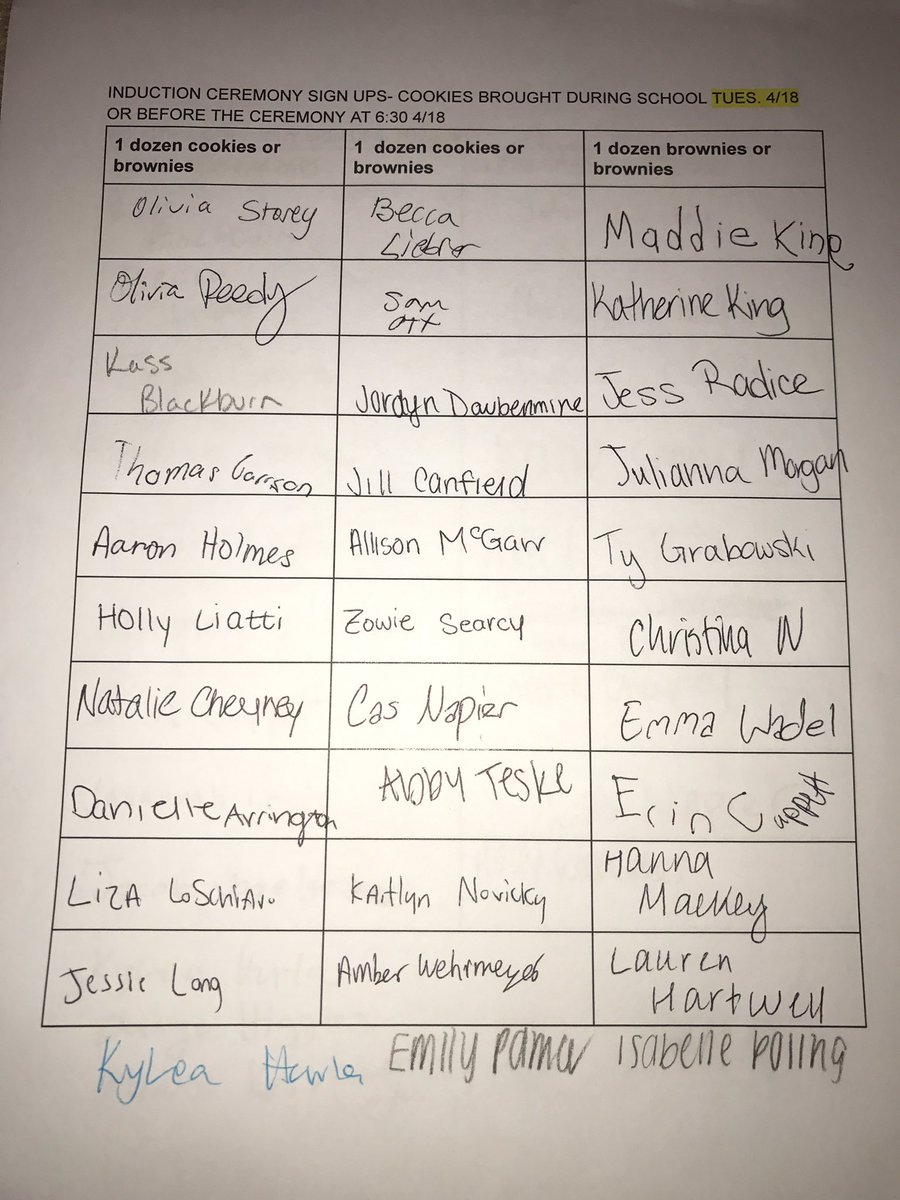 INDUCTION CEREMONY SIGN UPS- COOKIES BROUGHT DURING SCHOOL TUES. 4/18
OR BEFORE THE CEREMONY AT 6:30 4/18
1 dozen cookies or
brownies
1 dozen cookies or
brownies
1 dozen brownies or
brownies
Olivia Storey
Becca
Maddie King
Olivia Reedy
Sam
Ott
Katherine King
Kass
Blackburn
Jordyn Daubenmire
Jess Radice
Thomas Garrson
Jill Canfield
Julianna Morgan
Aaron Holmes
Allison McGarr
Ty Grabowski
Holly Liatti
Zowie Searcy
Christina N
Natalie Cheyney
Cas Napier
Emma Wadel
Danielle Arrington
Abby Teske
Erin Cuppett
Liza LoSchiavo
Kaitlyn Novicky
Hanna
Mackey
Jessie Long
Amber Wehrmeyer
Lauren
Hartwell
Kylea
Emily
Isabelle Poling